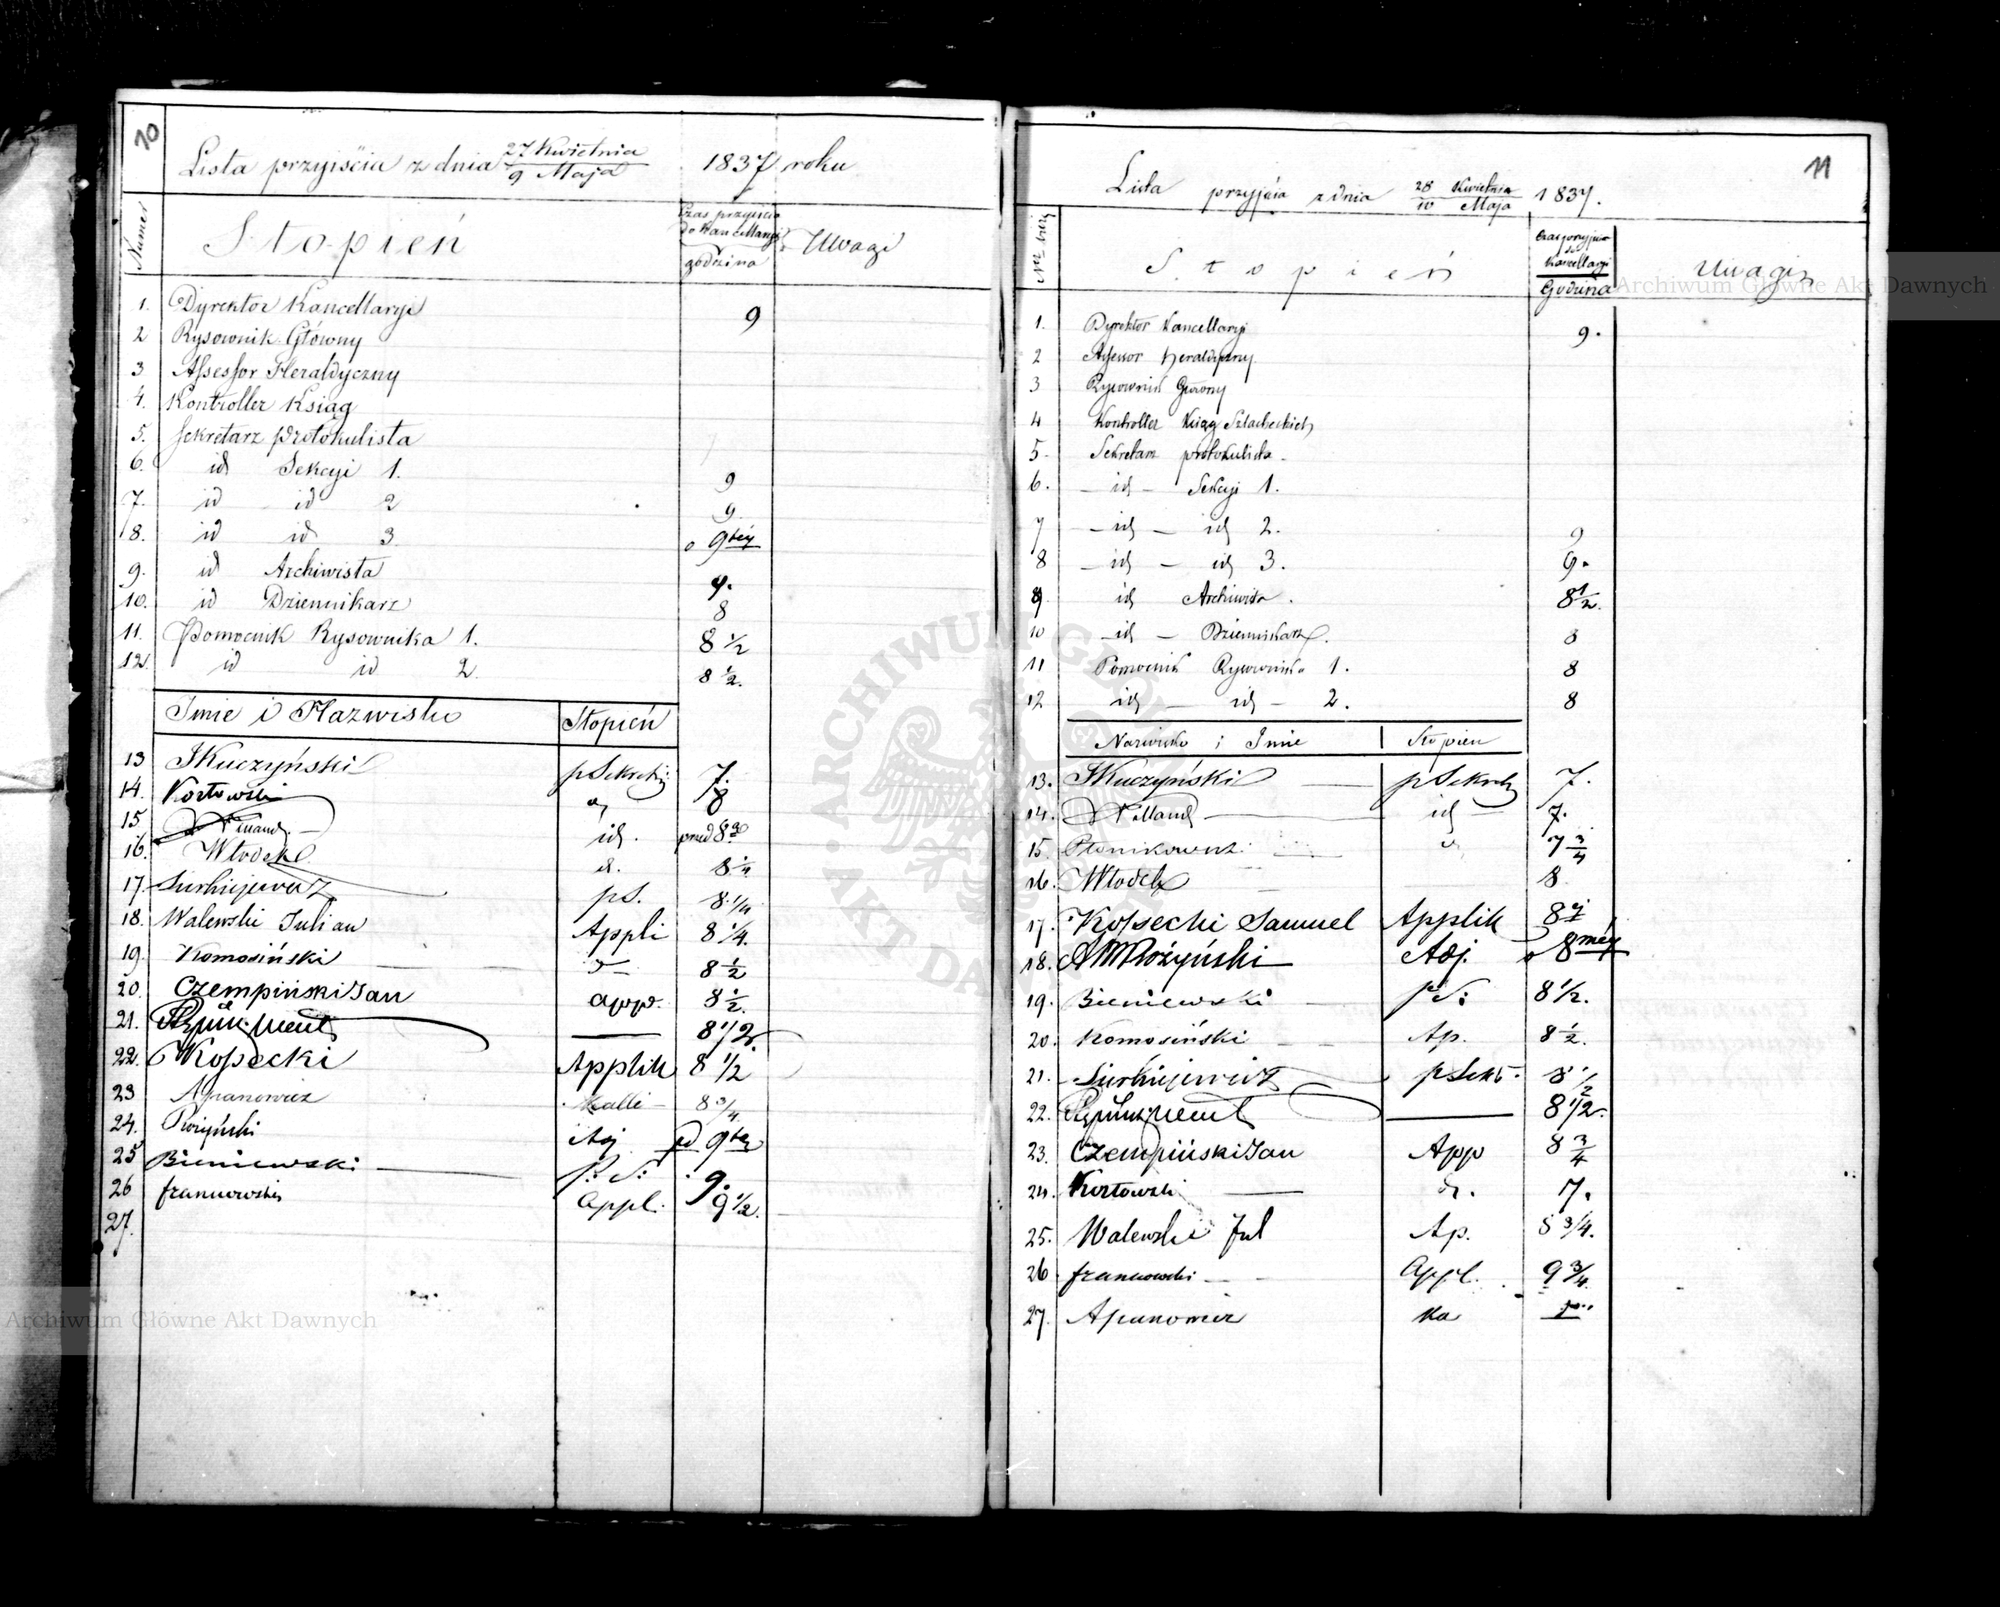 10
Lista przyjścia z dnia 27 Kwietnia / 9 Maja 1837 roku
Numer
Stopień
Czas przyjścia do Kancellaryi
godzina
Uwagi
1. Dyrektor Kancellaryi 9
2 Rysownik Główny
3 Assessor Heraldyczny
4. Kontroller Ksiąg
5. Sekretarz Protokulista
6. id Sekcyi 1. 9
7. id id 2 9
8. id id 3 o 9téy
9. id Archiwista 9.
10. id Dziennikarz 8
11. Pomocnik Rysownika 1. 8 1/2
12. id id 2. 8 1/2.
Imie i Nazwisko Stopień
13 JKuczyński pSekret: 7.
14. Kozłowski 8
15 id. przed 8
16. Włodek d. 8 1/4
17. pS. 8 1/4
18. Walewski Julian Appli 8 1/4.
19. Komosiński 8 1/2
20. Czempiński Jan app. 8 1/2.
21. 8 1/2
22. Kossecki Applik 8 1/2
23 Apanowicz Kalli 8 3/4
24. Różyński Adj 9téy
25 Bieniewski P. S: 9.
26 franciowski appl. 9 1/2.
27.
11
Lista przyjścia z dnia 28 Kwietnia / 10 Maja 1837.
Stopień
Czas przyjścia do Kancellaryi
Godzina
Uwagi
1. Dyrektor Kancellaryi 9.
2 Assessor Heraldyczny
3 Rysownik Główny
4 Kontroller Ksiąg Szlacheckich
5. Sekretarz protokulista
6. - id - Sekcyi 1.
7 - id - id 2. 9
8 - id - id 3. 9.
9 id Archiwista. 8 1/2.
10 - id - Dziennikarz. 8
11 Pomocnik Rysownika 1. 8
12 id - id - 2. 8
Nazwisko i Imie Stopien
13. JKuczyński pSekret 7.
14. id 7.
15. 7 3/4
16. Włodek 8
17. Kossecki Samuel Applik
18. Różyński Adj. o 8méy
19. Bieniewski pS: 8 1/2.
20. Komosiński Ap. 8 1/2.
21. pSekt. 8 1/2
22. 8 1/2.
23. Czempiński Jan App 8 3/4
24. Kozłowski d. 7.
25. Walewski Jul Ap. 8 3/4.
26 franciowski Appl. 9 3/4.
27. Apanowicz Ka
Archiwum Główne Akt Dawnych
Archiwum Główne Akt Dawnych
ARCHIWUM GŁÓWNE AKT DAWNYCH